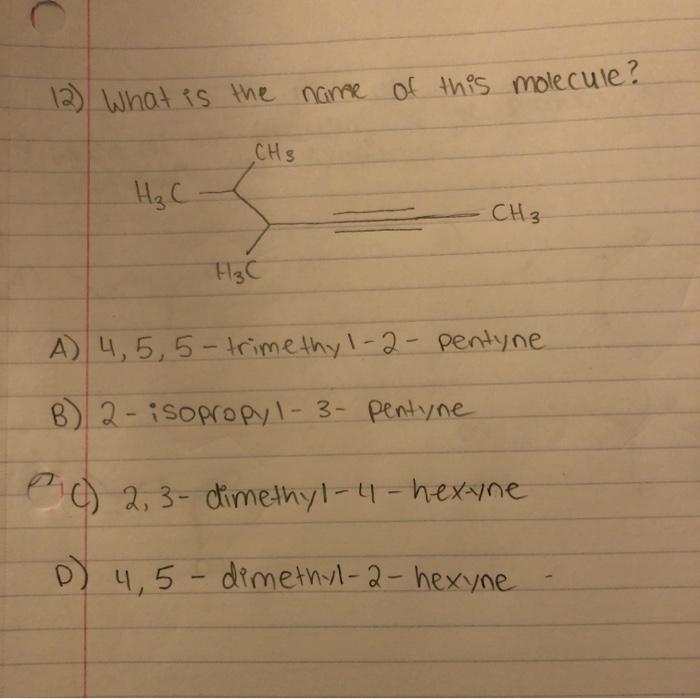 12) What is the name of this molecule?
CH3
H3C
CH3
H3C
A) 4,5,5-trimethyl-2-pentyne
B) 2-isopropyl-3-pentyne
C) 2,3-dimethyl-4-hexyne
D) 4,5-dimethyl-2-hexyne